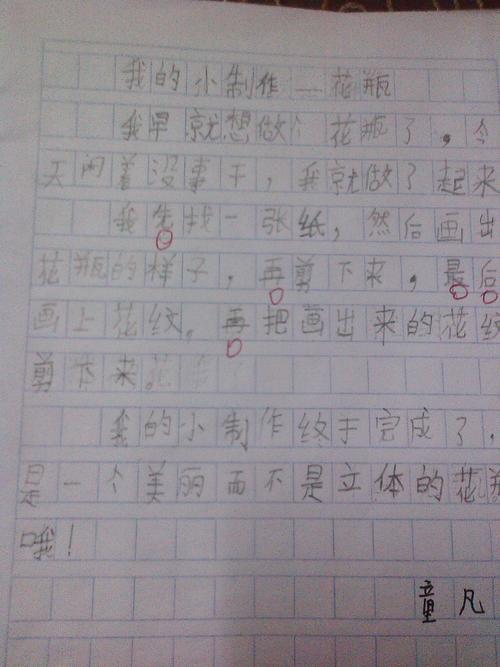 我的小制作——花瓶
我早就想做个花瓶了，今
天闲着没事干，我就做了起来
我先找一张纸，然后画出
花瓶的样子，再剪下来，最后
画上花纹。再把画出来的花纹
剪下来。
我的小制作终于完成了，
是一个美丽而不是立体的花瓶
哦！
童凡